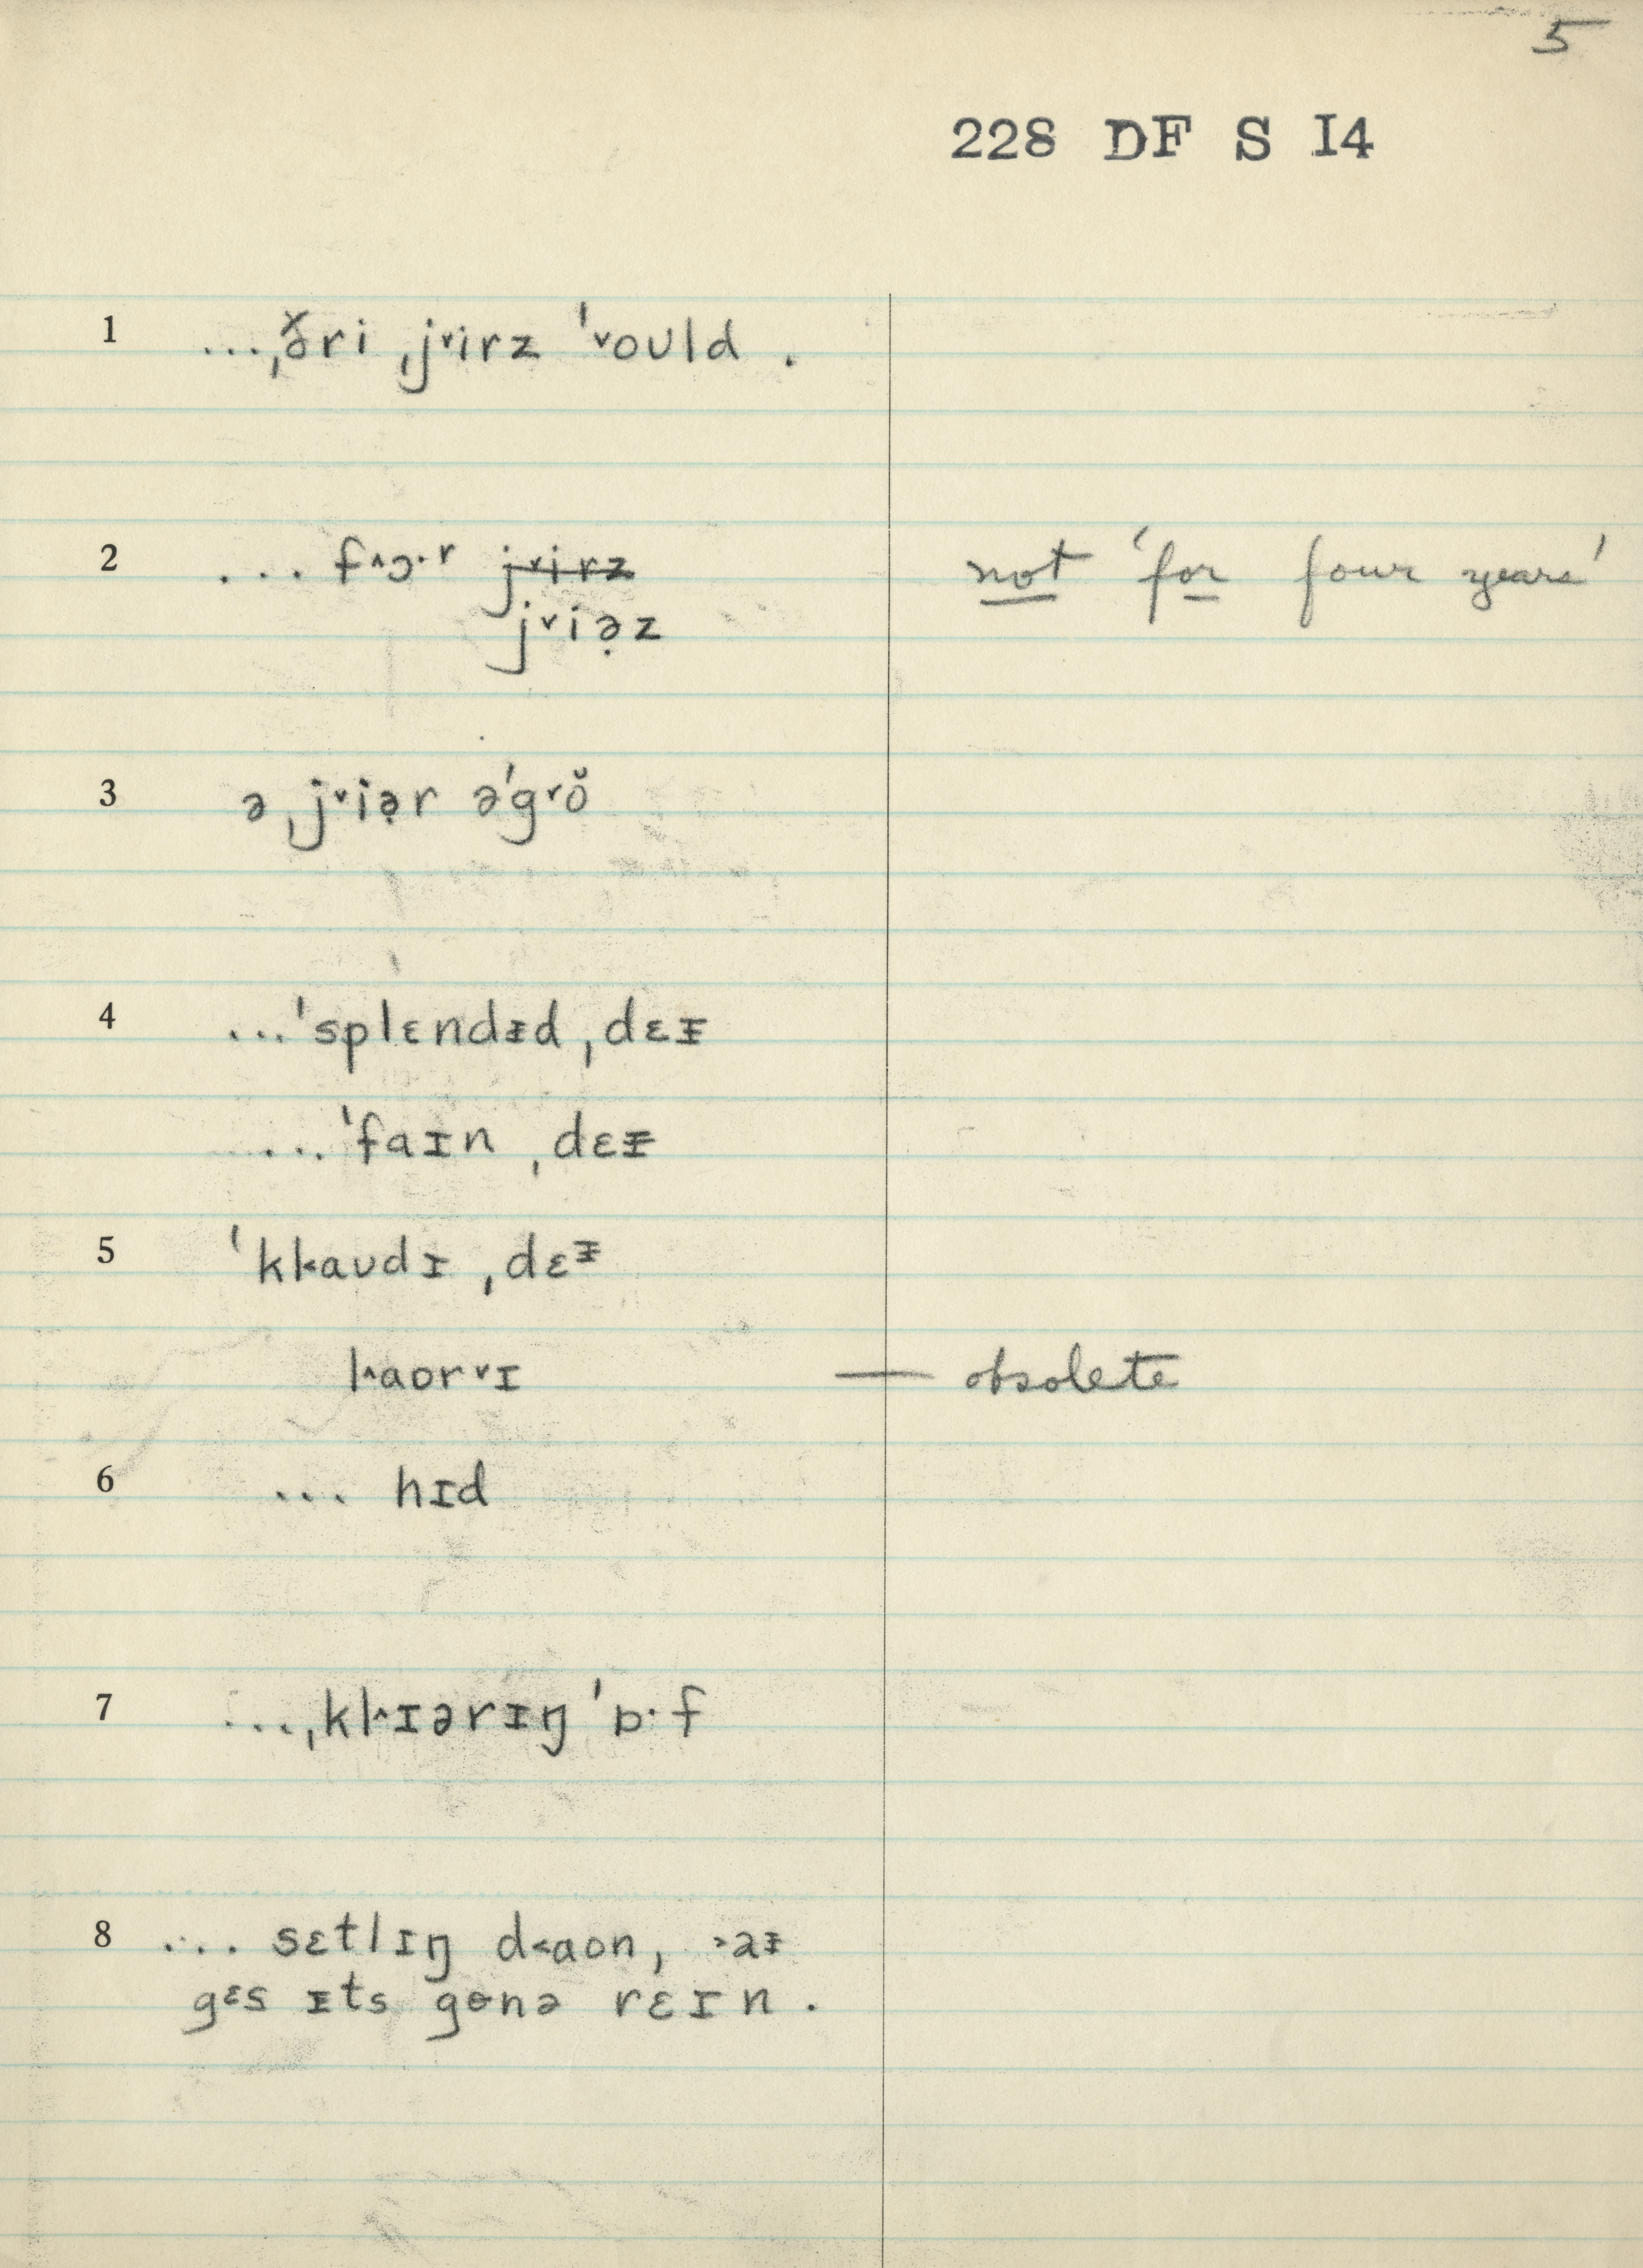 5
228 DF S I4
1 ...ˌɵ̌ri ˌj˅irz ˈ˅oʊld .
2 ... f˄ɔ·r j˅irz not 'for four years'
j˅iə̣z
3 ə ˌj˅iə̣r əˈg˅ŏ
4 ...ˈsplɛndᵻd ˌdɛᵻ
...ˈfaɪn ˌdɛᵻ
5 ˈkl˂aʊdɪ ˌdɛᵻ
l˄aor˅ɪ — obsolete
6 ... hɪd
7 ...ˌkl˄ɪərɪŋ ˈɒ·f
8 ... sɛtlɪŋ d˂aon, ˃aᵻ
gɛs ɪts gɵnə rɛɪn .